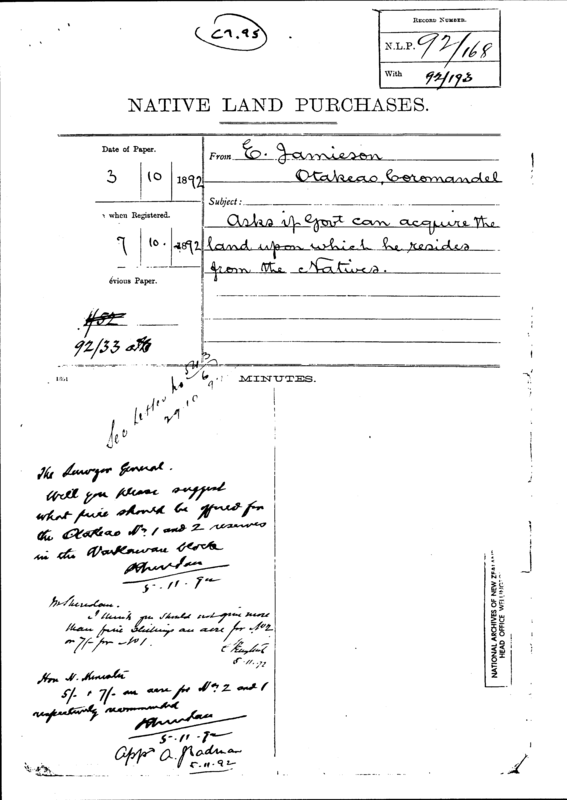 C7.95
RECORD NUMBER.
N.L.P. 92/168
With 92/193
NATIVE LAND PURCHASES.
Date of Paper.
3 10 1892
when Registered.
7 10. 1892
évious Paper.
92/33
From E. Jamieson
Otakeao, Coromandel
Subject:
Asks if Govt can acquire the
land upon which he resides
from the Natives.
MINUTES.
See Letter No
29 10
The Surveyor General.
Will you please suggest
what price should be offered for
the Otakeao No. 1 and 2 reserves
in the block
Sheridan
5-11-92
Mr Sheridan.
I think you should not give more
than five shillings an acre for No 2
or 7/- for No 1.
5.11.92
Hon N. Minister
5/- & 7/- an acre for Nos 2 and 1
respectively recommended
Sheridan
5-11-92
Appd A. J. Cadman
5.11.92
NATIONAL ARCHIVES OF NEW ZEAL
HEAD OFFICE WELLING